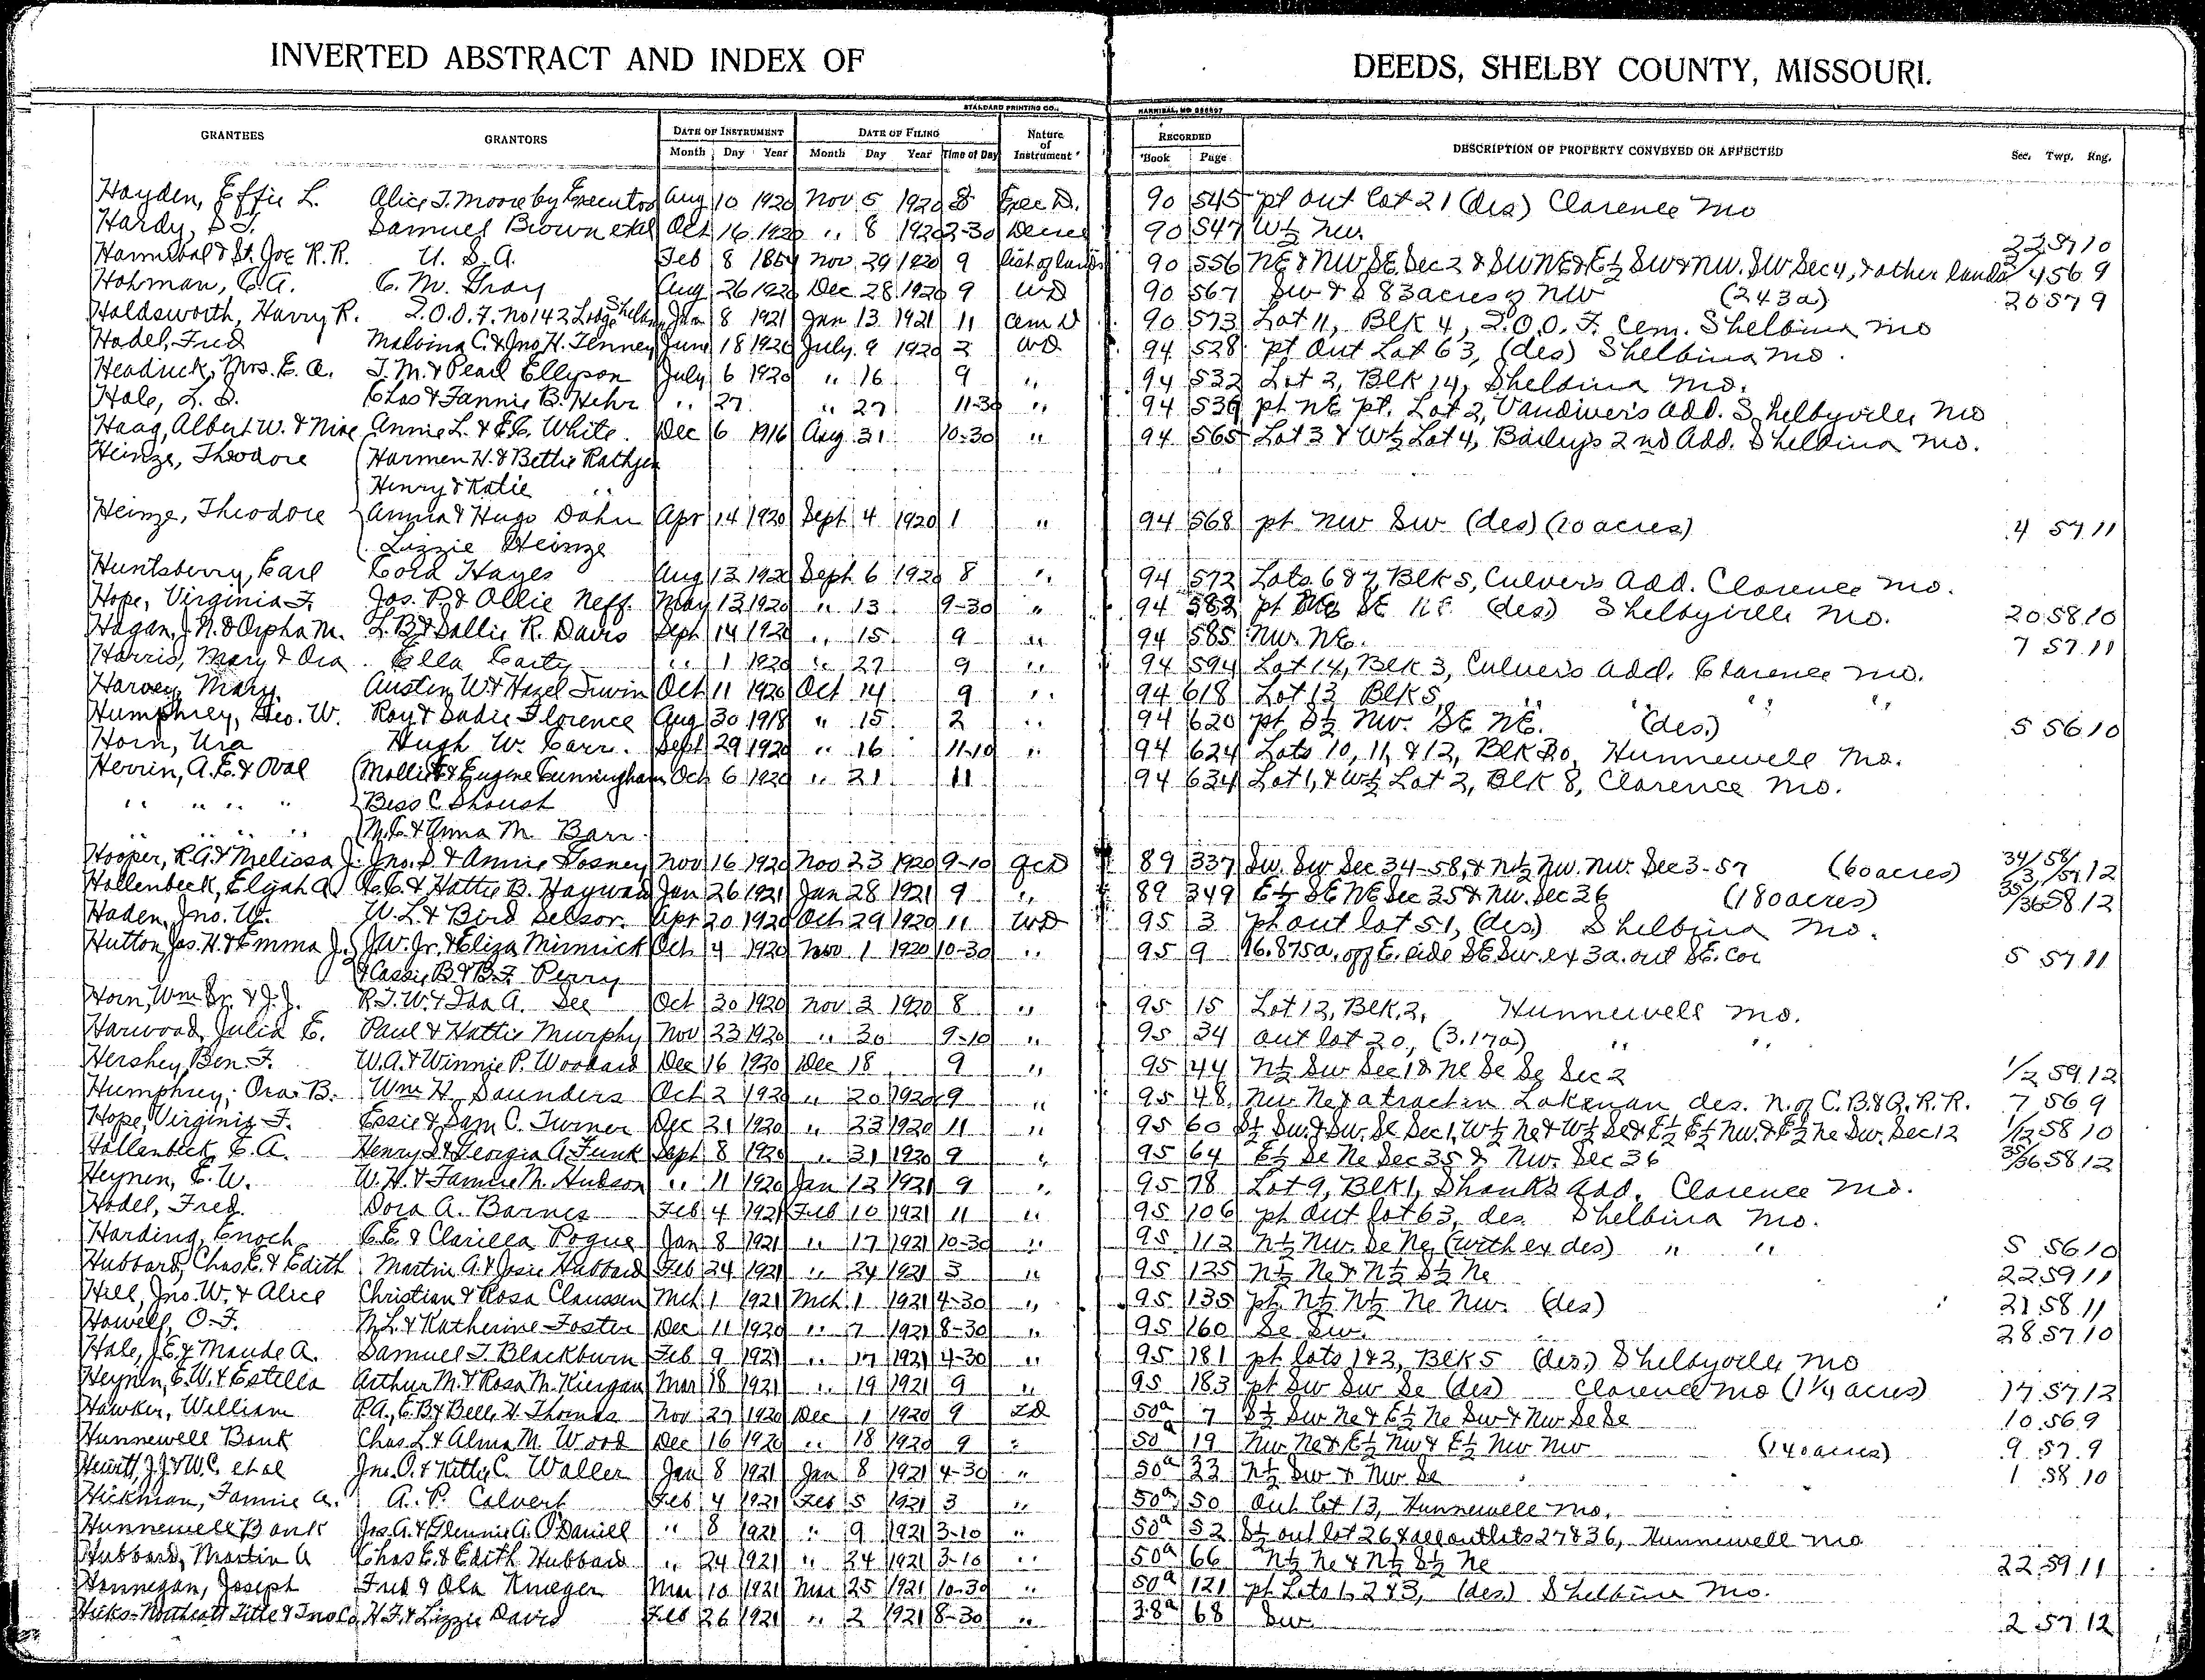 INVERTED ABSTRACT AND INDEX OF DEEDS, SHELBY COUNTY, MISSOURI.
STANDARD PRINTING CO., HANNIBAL, MO
GRANTEES GRANTORS DATE OF INSTRUMENT DATE OF FILING Nature of Instrument RECORDED DESCRIPTION OF PROPERTY CONVEYED OR AFFECTED Sec. Twp. Rng.
Month Day Year Month Day Year Time of Day Book Page
Hayden, Effie L. Alice T. Moore by Executor Aug 10 1920 Nov 5 1920 8 Exec D. 90 545 pt out Lot 21 (des) Clarence Mo
Hardy, S T. Samuel Brown etal Oct 16 1920 " 8 1920 2-30 Decree 90 547 W½ NW. 22 57 10
Hannibal & St. Joe R.R. U. S. A. Feb 8 1854 Nov 29 1920 9 List of lands 90 556 NE & NW SE Sec 2 & SW NE & E½ SW & NW. SW Sec 4, & other lands 2/4 56 9
Hohman, C.A. C. M. Gray Aug 26 1920 Dec 28 1920 9 WD 90 567 SW & S 83 acres of NW (243a) 20 57 9
Holdsworth, Harry R. I.O.O.F. No 142 Lodge Shelbina Jan 8 1921 Jan 13 1921 11 Cem D 90 573 Lot 11, Blk 4, I.O.O.F. Cem. Shelbina Mo
Hodel, Fred Malvina C. & Jno H. Tenney June 18 1920 July 9 1920 2 WD 94 528 pt Out Lot 63, (des) Shelbina Mo.
Headrick, Mrs. E. A. J. M. & Pearl Ellyson July 6 1920 " 16 9 " 94 532 Lot 2, Blk 14, Shelbina Mo.
Hale, L. S. Chas & Fannie B. Hehr " 27 " 27 11-30 " 94 539 pt NE pt. Lot 2, Vandiver's Add. Shelbyville Mo
Haag, Albert W. & Nine Annie L. & E.C. White. Dec 6 1916 Aug 31 10-30 " 94 565 Lot 3 & W½ Lot 4, Bailey's 2nd Add. Shelbina Mo.
Heinze, Theodore Harmen H. & Bettie Rathjen
Henry & Katie "
Heinze, Theodore Anna & Hugo Dahn Apr 14 1920 Sept 4 1920 1 " 94 568 pt NW SW (des) (20 acres) 4 57 11
Lizzie Heinze
Huntsberry, Earl Cora Hayes Aug 13 1920 Sept 6 1920 8 " 94 572 Lots 6 & 7, Blk 5, Culver's Add. Clarence Mo.
Hope, Virginia F. Jos. P. & Ollie Neff. May 13 1920 " 13 9-30 " 94 582 pt SE (des) Shelbyville Mo. 20 58 10
Hagan, J.N. & Orpha M. L.B. & Sallie R. Davis Sept 14 1920 " 15 9 " 94 585 NW. NE. 7 57 11
Harris, Mary & Ora Ella Carty " 1 1920 " 27 9 " 94 594 Lot 14, Blk 3, Culver's Add. Clarence Mo.
Harvey, Mary Austin W. & Hazel Irwin Oct 11 1920 Oct 14 9 " 94 618 Lot 13 Blk 5, " " " "
Humphrey, Geo. W. Roy & Sadie Florence Aug 30 1918 " 15 2 " 94 620 pt S½ NW. SE NE. (des) 5 56 10
Horn, Ura Hugh W. Carr. Sept 29 1920 " 16 11-10 " 94 624 Lots 10, 11, & 12, Blk 20, Hunnewell Mo.
Herrin, A.E. & Oval Mollie E & Eugene Cunningham Oct 6 1920 " 21 11 94 634 Lot 1, & W½ Lot 2, Blk 8, Clarence Mo.
" " " " Bess C Shoush
" " " " M.C. & Anna M. Barr
Hooper, R.G. & Melissa J. Jno. S. & Annie Gosney Nov 16 1920 Nov 23 1920 9-10 QCD 89 337 SW. SW Sec 34-58, & N½ NW. NW. Sec 3-57 (60 acres) 34/3 58/57 12
Hollenbeck, Elijah A. C.C. & Hattie B. Hayward Jan 26 1921 Jan 28 1921 9 " 89 349 E½ SE NE Sec 35 & NW. Sec 36 (180 acres) 35/36 58 12
Haden, Jno. W. W. L. & Bird Selsor. Apr 20 1920 Oct 29 1920 11 WD 95 3 pt out lot 51, (des) Shelbina Mo.
Hutton, Jas. H. & Emma J. J.W. Jr. & Eliza Minnick Oct 4 1920 Nov 1 1920 10-30 " 95 9 16.875a. off E. side SE SW. ex 3a. out SE. cor 5 57 11
& Cassie B. & B.F. Perry
Horn, Wm Sr. & J.J. R.T.W. & Ida A. See Oct 30 1920 Nov 3 1920 8 " 95 15 Lot 12, Blk. 2, Hunnewell Mo.
Harwood, Julia E. Paul & Hattie Murphy Nov 23 1920 " 30 9-10 " 95 34 out lot 20, (3.17a) " "
Hershey, Ben. F. W.A. & Winnie P. Woodard Dec 16 1920 Dec 18 9 " 95 44 N½ SW Sec 1 & NE SE SE Sec 2 1/2 59 12
Humphrey, Ora B. Wm H. Saunders Oct 2 1920 " 20 1920 9 " 95 48 NW. NE & a tract in Lakenan des. N. of C.B. & Q. R.R. 7 56 9
Hope, Virginia F. Essie & Sam C. Turner Dec 21 1920 " 23 1920 11 " 95 60 S½ SW. & SW. SE Sec 1, W½ NE & W½ SE & E½ E½ NW. & E½ NE SW. Sec 12 1/12 58 10
Hollenbeck, E. A. Henry S. & Georgia A. Funk Sept 8 1920 " 31 1920 9 " 95 64 E½ SE NE Sec 35 & NW. Sec 36 35/36 58 12
Heynen, E. W. W.H. & Fannie M. Hudson " 11 1920 Jan 12 1921 9 " 95 78 Lot 9, Blk 1, Shanks Add. Clarence Mo.
Hodel, Fred. Dora A. Barnes Feb 4 1921 Feb 10 1921 11 " 95 106 pt Out lot 63, des Shelbina Mo.
Harding, Enoch C.E. & Clarissa Pogue Jan 8 1921 " 17 1921 10-30 " 95 112 N½ NW. SE NE (with ex des) " " 5 56 10
Hubbard, Chas E. & Edith Martin A. & Josie Hubbard Feb 24 1921 " 24 1921 3 " 95 125 N½ NE & N½ S½ NE 22 59 11
Hill, Jno. W. & Alice Christian & Rosa Claussen Mch 1 1921 Mch. 1 1921 4-30 " 95 135 pt N½ N½ NE NW. (des) 21 58 11
Howell, O. F. N.L. & Katherine Foster Dec 11 1920 " 7 1921 8-30 " 95 160 SE SW. 28 57 10
Hale, J.E. & Maude A. Samuel T. Blackburn Feb 9 1921 " 17 1921 4-30 " 95 181 pt lots 1 & 2, Blk 5 (des) Shelbyville Mo
Heynen, E.W. & Estella Arthur M. & Rosa M. Kiergan Mar 18 1921 " 19 1921 9 " 95 183 pt SW SW SE (des) Clarence Mo (1¼ acres) 17 57 12
Hawker, William P.A., E.B. & Belle H. Thomas Nov 27 1920 Dec 1 1920 9 ZD 50a 7 S½ SW NE & E½ NE SW & NW SE SE 10 56 9
Hunnewell Bank Chas L. & Alma M. Wood Dec 16 1920 " 18 1920 9 " 50a 19 NW NE & E½ NW & E½ NW NW (140 acres) 9 57 9
Hewitt, J.J. & W.C. et al Jno. O. & Kittie C. Waller Jan 8 1921 Jan 8 1921 4-30 " 50a 33 N½ SW & NW SE 1 58 10
Hickman, Fannie A. A. P. Calvert Feb 4 1921 Feb 5 1921 3 " 50a 50 Out Lot 13, Hunnewell Mo.
Hunnewell Bank Jos. A. & Glennie A. O'Daniell " 8 1921 " 9 1921 3-10 " 50a 52 S½ out lot 26 & all outlots 27 & 36, Hunnewell Mo
Hubbard, Martin A Chas E. & Edith Hubbard " 24 1921 " 24 1921 3-10 " 50a 66 N½ NE & N½ S½ NE 22 59 11
Hannegan, Joseph Fred & Ola Krueger Mar 10 1921 Mar 25 1921 10-30 " 50a 121 pt Lots 1, 2 & 3, (des) Shelbina Mo.
Hicks-Northcott Title & Ins Co. H.F. & Lizzie Davis Feb 26 1921 " 2 1921 8-30 " 38a 68 SW. 2 57 12